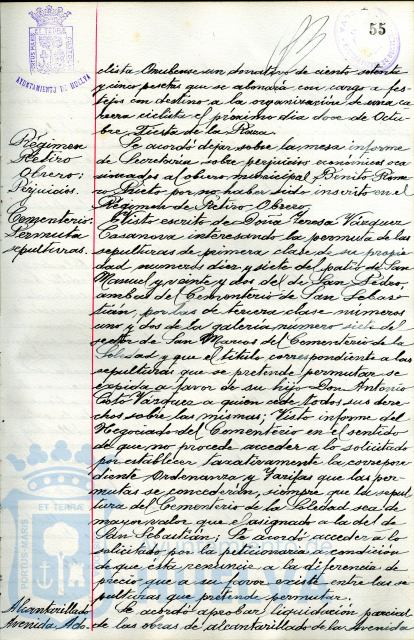 55
AYUNTAMIENTO DE HUELVA
clista Onubense un donativo de ciento setenta
y cinco pesetas que se abonará con cargo a fes-
tejos con destino a la organización de una ca-
rrera ciclista el próximo día doce de Octu-
bre, Fiesta de la Raza.
Régimen
Retiro
Obrero:
Perjuicios.
Se acordó dejar sobre la mesa informe
de Secretaría sobre perjuicios económicos oca-
sionados al obrero municipal Benito Rome-
ro Prieto por no haber sido inscrito en el
Régimen de Retiro Obrero.
Cementerio:
Permuta
sepulturas.
Visto escrito de Doña Teresa Vázquez
Casanova interesando la permuta de las
sepulturas de primera clase de su propie-
dad números diez y siete del patio de San
Manuel y veinte y dos del de San Pedro,
ambas del Cementerio de San Sebas-
tián, por las de tercera clase números
uno y dos de la galería número siete del
sector de San Marcos del Cementerio de la
Soledad y que el título correspondiente a las
sepulturas que se pretende permutar se
expida a favor de su hijo Don Antonio
Coto Vázquez a quien cede todos sus dere-
chos sobre las mismas; Visto informe del
Negociado del Cementerio en el sentido
de que no procede acceder a lo solicitado
por establecer taxativamente la correspon-
diente Ordenanza y Tarifas que las per-
mutas se concederán, siempre que la sepul-
tura del Cementerio de la Soledad sea de
mayor valor que el asignado a la del de
San Sebastián; Se acordó acceder a lo
solicitado por la peticionaria a condición
de que ésta renuncie a la diferencia de
precio que a su favor existe entre las se-
pulturas que pretende permutar.
Alcantarillado
Avenida Ado-
Se acordó aprobar liquidación parcial
de las obras de alcantarillado de la Avenida
ET TERRA
PORTUS MARIS
Ayuntamiento de